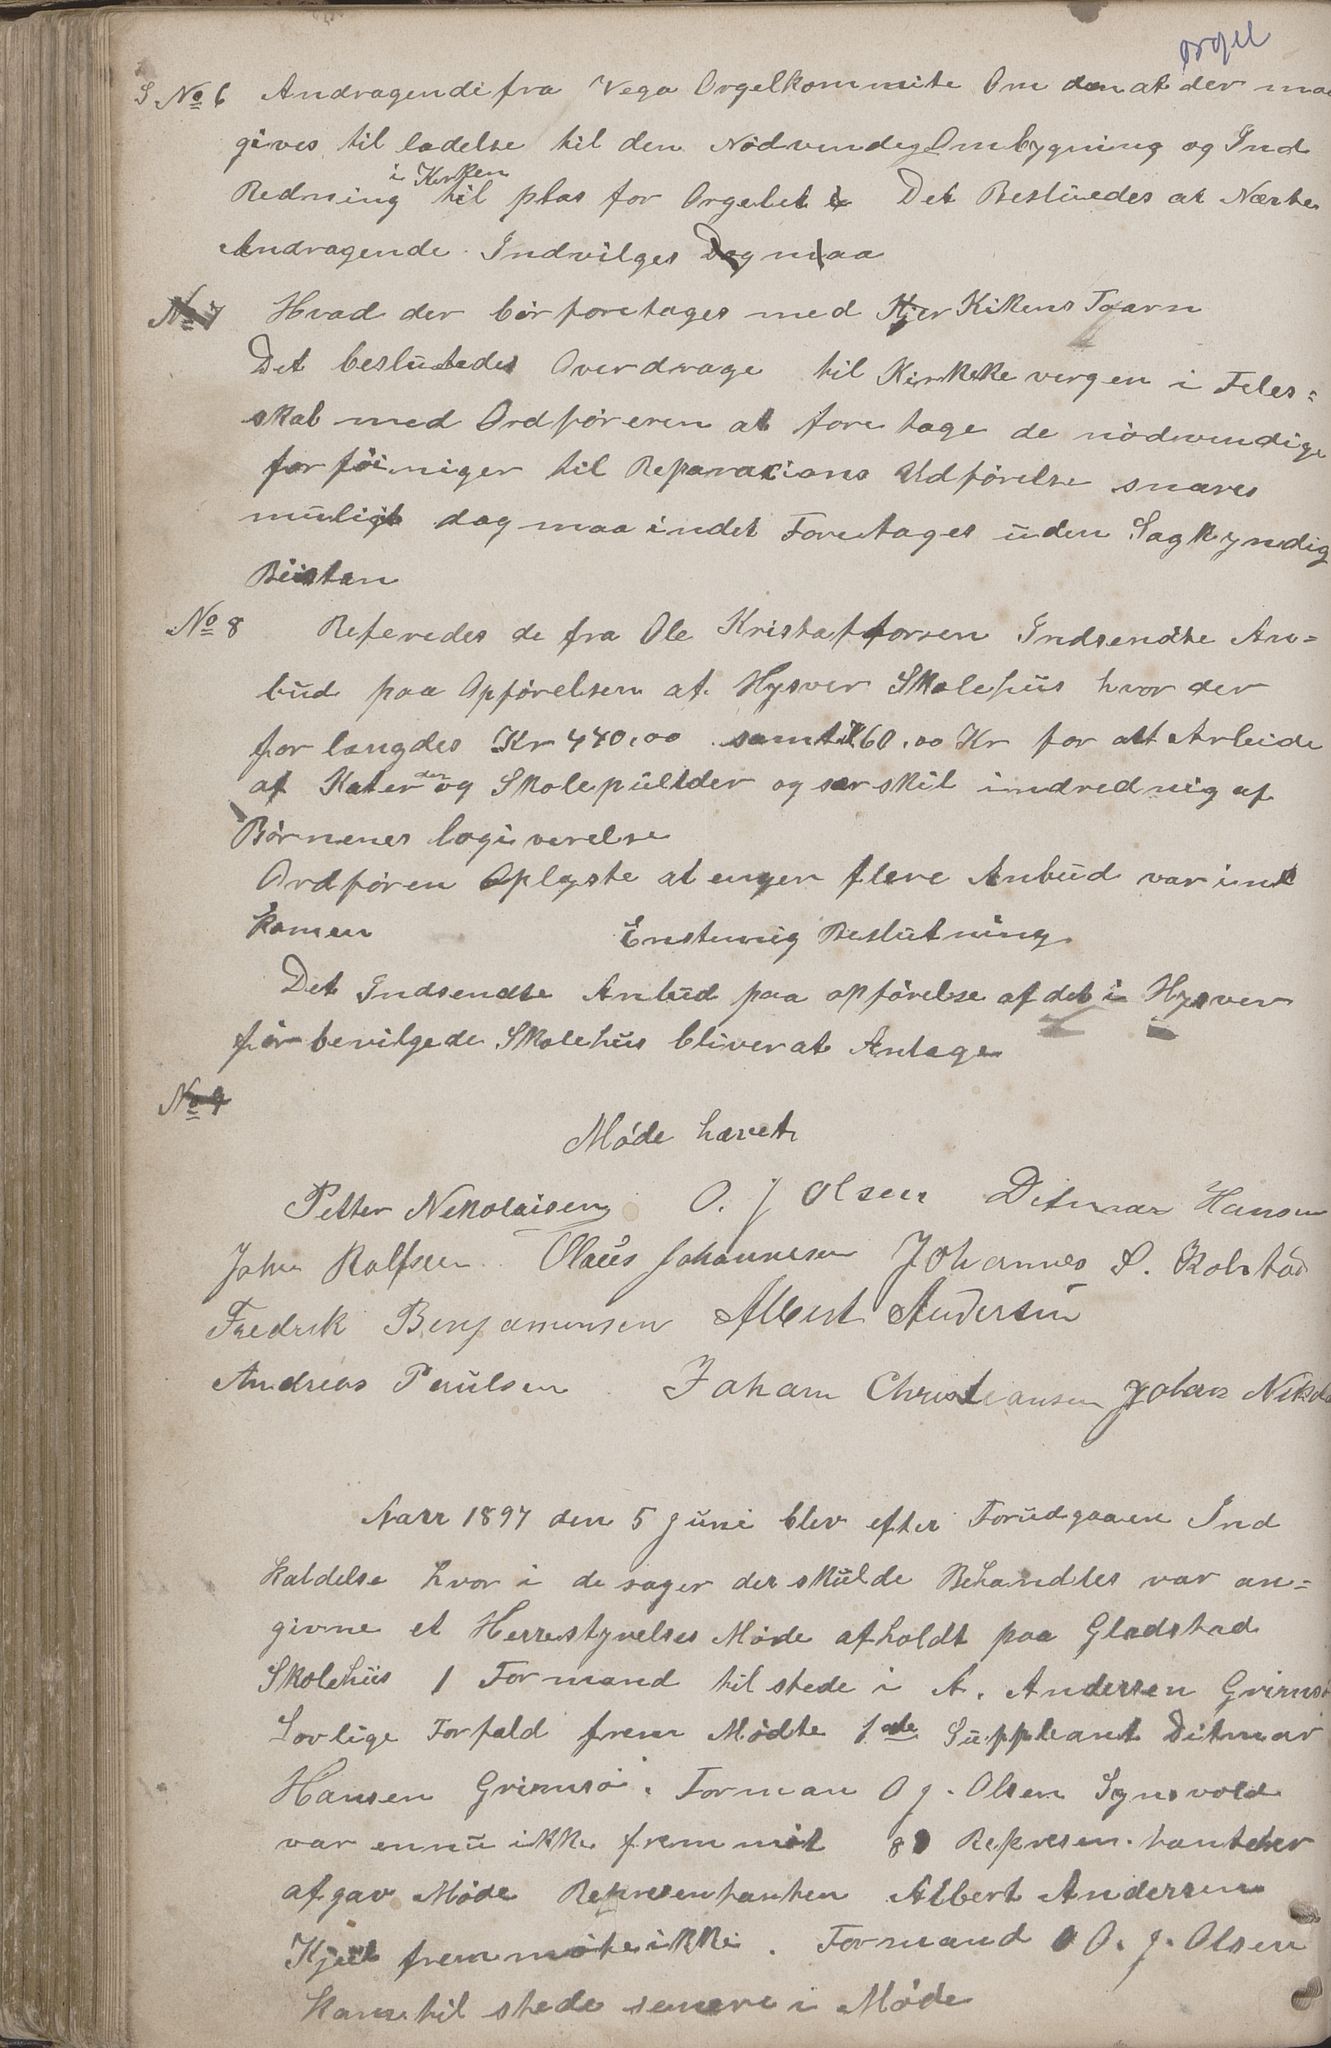 orgel
S No 6 Andragendi fra Vega Orgelkommite Om den at der maa
gives til ladelse til den Nødvendig Ombygning og Ind
Redning i Kirken til plas for Orgelet Det Besluedes at Nærte
Andragende Indvilges Dog maa
No 7 Hvad der bør foretages med Kirkens Taarn
Det beslutedes Overdrage til Kirkeke vergen i Feles=
skab med Ordføreren at fore tage de nødvendige
forføininger til Reparacions Udførelse snares
muligt dog maa indet Foretages uden Sagkyndig
Biistan
No 8 Referedes de fra Ole Kristafforsen Indsendte An=
bud paa Opførelsen af Hysver Skolehus hvor der
for langdes Kr 440,00 samt til 60,00 Kr for alt Arbeide
af Kateder og Skolepullder og særskilt indrednig af
Børnenes logi verelse
Ordføren Oplyste at engen flere Anbud var ind
komen Enstemig Beslutning
Det Indsendte Anbud paa opførelse af det i Hysver
før bevilgede Skolehus bliver at Antage
No 9
Møde hævet
Petter Nikolaisen O. J Olsen Ditmar Hansen
John Rolfsen Olaus Johannesen Johannes S. Kolstad
Fredrik Benjaminsen Albert Andersen
Andreas Paulsen Johan Christiansen Johan Nikola
Aarr 1897 den 5 Juni blev efter Forudgaaen Ind
kaldelse hvor i de sager der skulde Behandles var an=
givne et Herrestyrelses Møde afholdt paa Gladstad
Skolehus 1 Formand til stede i A. Andersen Grimsø
Lovlige Forfald frem Mødte 1ste Suppleant Ditmar
Hansen Grimsø. Forman O J. Olsen Synsvold
var ennu ikke frem møt 8 Represen.tanteher
afgav Møde Representanten Albert Andersen
Kjul fremmøte ikke. Formand O. J. Olsen
kom til stede senere i Møde